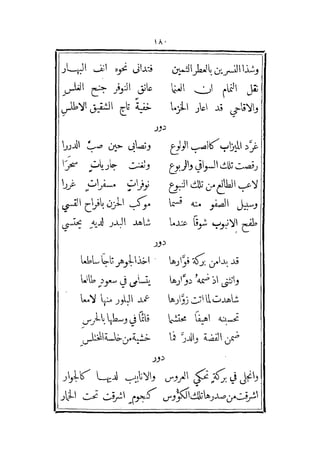 ١٨٠
وشذا النسرين بالعطر الثمين فتدانى نحوه انف البهار
نقل النمام ان العنما عانق النوفر جنح الغلس
والاقاحي قد اعار الخزما خفية تاج الشقيق الاطلس
دور
غرّد الميزاب كالصب الولوع وتصابى حين صب الدررا
رقصت تلك السواقي والربوع ولغنت جاريات سحرا
لاعب الطالع من تلك النبوع نوفرات مسفرات غررا
وسبيل الصفو منه قسما موكب الحزن بافراح القسي
طفح الانبوب شوقا عندما شاهد البدر لديه يحتسي
دور
قد بدا من بركة فوّارها اخذ الجوهر تاجا ساطعا
وانثنى اذ ضمه دوّارها يتسامى في سعود طالعا
شاهدت لما اتت زوّارها عمد البلور منها لامعا
تحسبنه اهيفا محتشما قائما في وسطها بالحرس
ضمن الفضة والدرّ فما خشية من خلسة المختلس
دور
وانجلى في بركة تحكي العروس والانابيب لديها كالجوار
اشرقت من صدرها تلك الكؤوس كنجوم اشرقت تحت الخمار